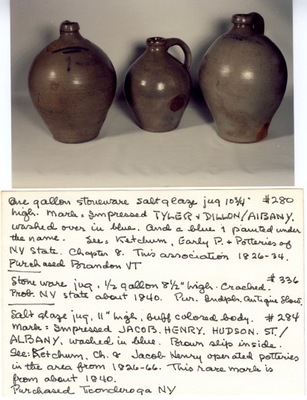 One gallon stoneware salt glaze jug 10 3/4" #280
high. Mark: Impressed TYLER & DILLON/ALBANY,
washed over in blue. And a blue 1 painted under
the name. See, Ketchum, Early P. & Potteries of
NY State. Chapter 8. This association 1826-34.
Purchased Brandon VT
Stone ware jug. 1/2 gallon 8 1/2" high. Cracked. #336
Prob. NY state about 1840. Pur. Antique Show.
Salt glaze jug. 11" high, buff colored body. #284
Mark: Impressed JACOB. HENRY. HUDSON. ST./
ALBANY. washed in blue. Brown slip inside.
See: Ketchum, Ch. 8 Jacob Henry operated potteries
in the area from 1826-66. This rare mark is
from about 1840.
Purchased Ticonderoga NY